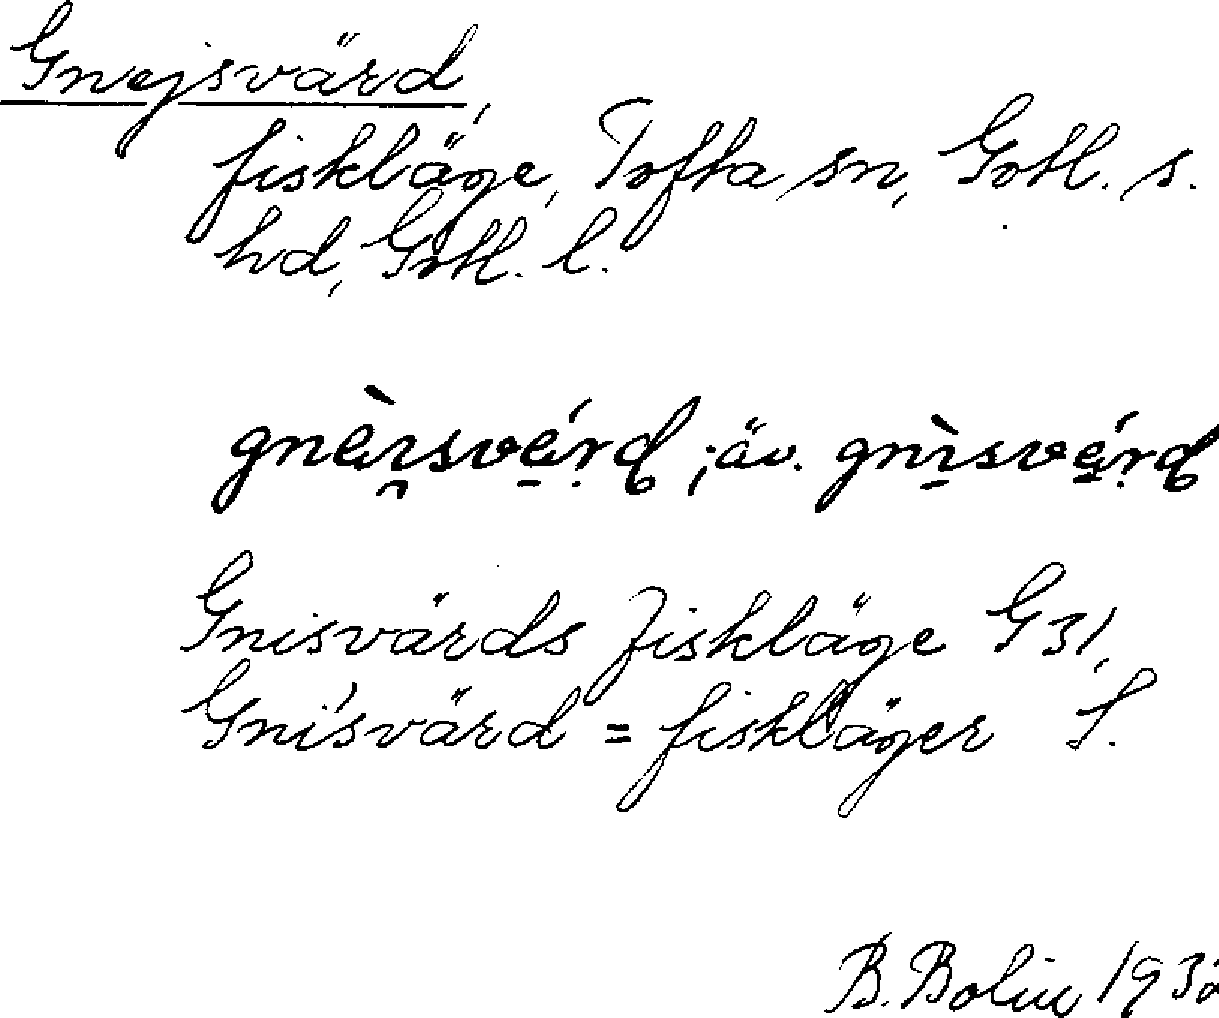 Gnejsvärd,
fiskläge, Tofta sn, Gotl. s.
hd, Gotl. l.
äv.
Gnisvärds Fiskläge G 31,
Gnisvärd = fiskläger S.
B. Bolin 1932